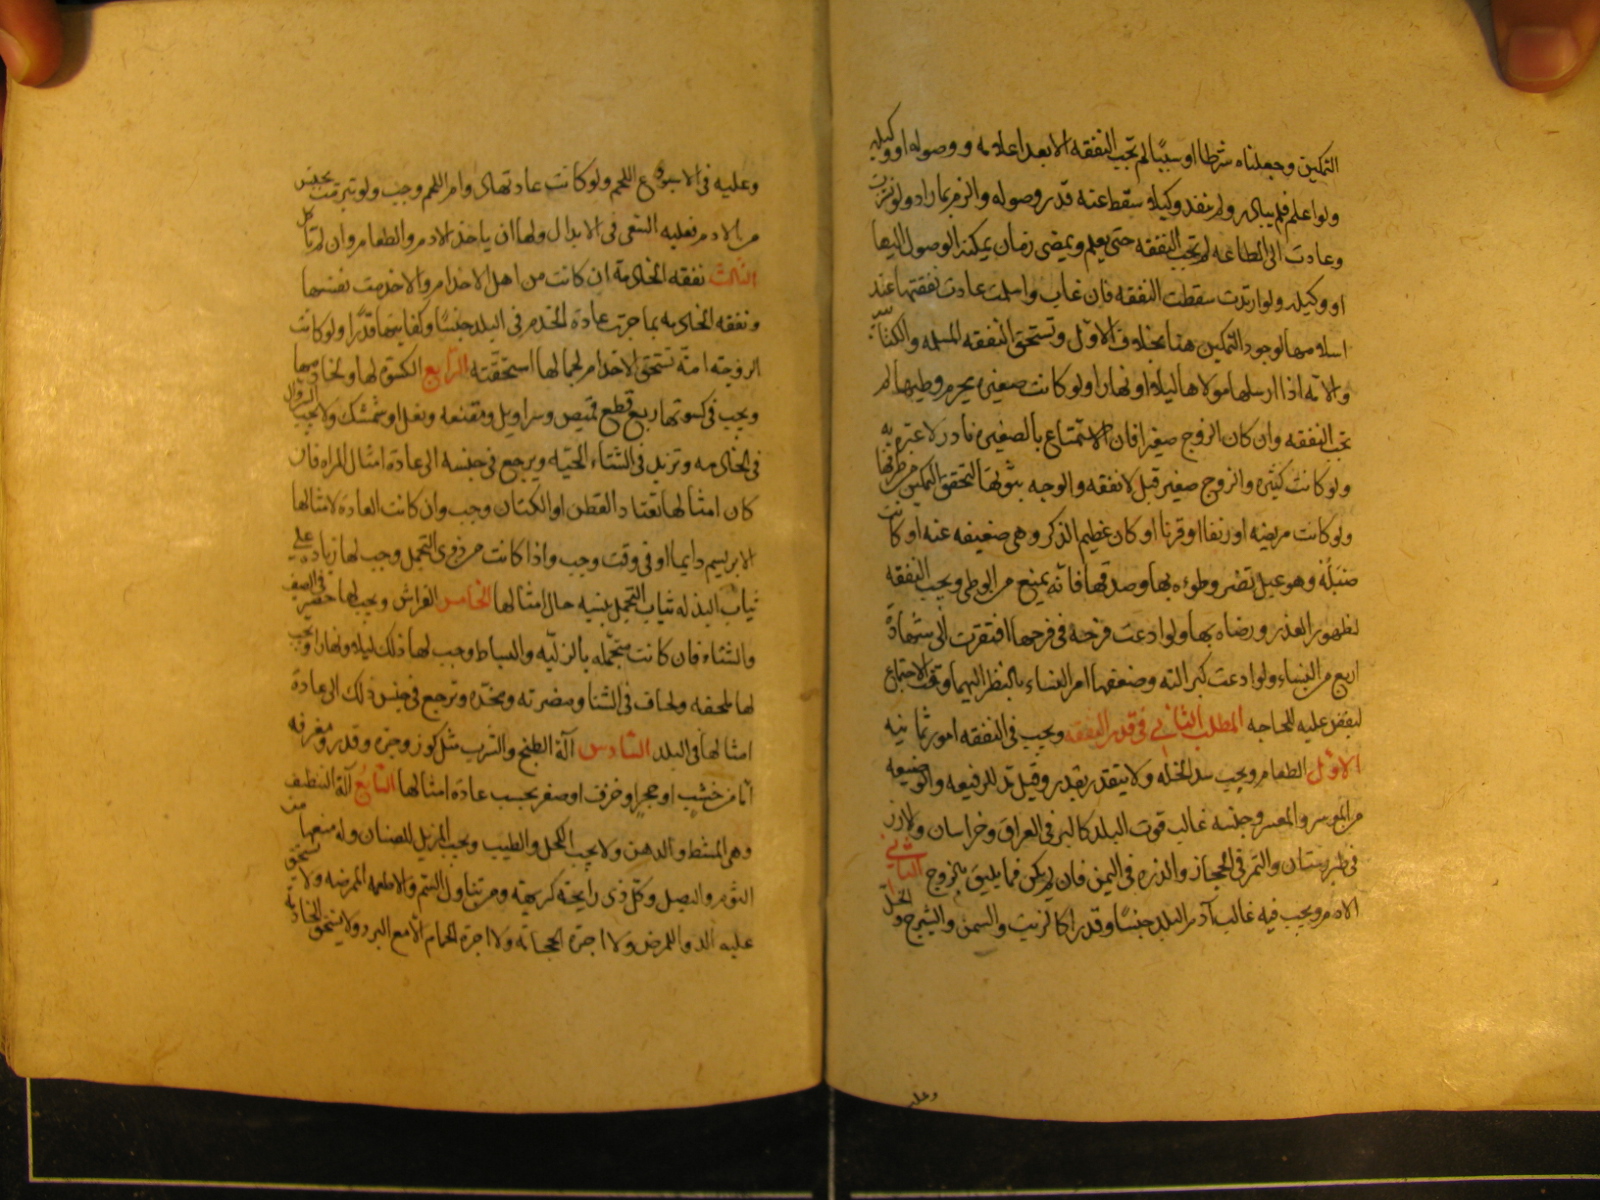 التمكين وجعلناه شرطا او سببًا لم تجب النفقه الا بعد اعلامه ووصوله او وكيله
ولو اعلم فلم يبادر ولم ينفذ وكيلا سقط عنه قدر وصوله والزم بما زاد ولو نشزت
وعادت الى الطاعه لم تجب النفقه حتى يعلم ويمضى زمان يمكنه الوصول اليها
او وكيله ولو ارتدت سقطت النفقه فان غاب واسلمت عادت نفقتها عند
اسلامها لوجود التمكين هنا بخلاف الاوّل وتستحق النفقه المسلمه والكتابيّه
والامه اذا ارسلها مولاها ليلا ونهارا ولو كانت صغيره يحرم وطيها لم
تجب النفقه وان كان الزوج صغيرا فان الاستمتاع بالصغيره نادر لا عبره به
ولو كانت كبيره والزوج صغير قيل لا نفقه والوجه ثبوتها لتحقق التمكين من طرفها
ولو كانت مريضه او رتقا او قرنا او كان عظيم الذكر وهى ضعيفه عنه او كانت
ضئيلة وهو عبل تضر وطوءه بها وصدقها فانه يمنع من الوطى ويجب النفقه
لظهور العذر ورضاه بها ولو ادعت قرحه فى فرجها افتقرت الى شهادة
اربع من النساء ولو ادعت كبر الته وضعفها امر النساء بالنظر اليهما وقت الاجتماع
ليقفن عليه للحاجه المطلب الثانى فى قدر النفقه ويجب فى النفقه امور ثمانيه
الاوّل الطعام ويجب سد الخله ولا يتقدر بقدر وقيل مد للرفيعه والوضيعه
من الموسر والمعسر وجنسه غالب قوت البلد كالبر فى العراق وخراسان والارز
فى طبرستان والتمر فى الحجاز والذره فى اليمن فان لم يكن فما يليق بالزوج الثانى
الادم ويجب فيه غالب آدم البلد جنسًا وقدرا كالزيت والسمن والشيرج والخلّ
وعليه
وعليه فى الاسبوع اللحم ولو كانت عادتها دوام اللحم وجب ولو تبرمت بجنس
من الادم فعليه السعى فى الابدال ولها ان ياخذ الادم والطعام وان لم تاكل
الثالث نفقه الخادمة ان كانت من اهل الاخدام والا خدمت نفسها
ونفقه الخادمه بما جرت عادة الخدم فى البلد جنسًا وكفايتها قدرًا ولو كانت
الزوجه امة تستحق الاخدام لجمالها استحقته الرّابع الكسوة لها ولخادمها
ويجب فى كسوتها اربع قطع قميص وسراويل ومقنعه ونعل او شمشك ولا يجب السروال
فى الخادمه وتزيد فى الشتاء الجبّه ويرجع فى جنسه الى عادة امثال المراه فان
كان امثالها تعتاد القطن او الكتان وجب وان كانت العادة لامثالها
الابريسم دايما او فى وقت وجب واذا كانت من ذوى التجمل وجب لها زياده على
ثياب البذله ثياب التجمل بنسبه حال امثالها الخامس الفراش ويجب لها حصير فى الصيف
والشتاء فان كانت متجّمله بالزليّه والبساط وجب لها ذلك ليلا ونهارا ويجب
لها ملحفه ولحاف فى الشتا ومضربه ومخدّه وترجع فى جنس ذلك الى عادة
امثالها فى البلد السّادس آلة الطبخ والشرب مثل كوز وجره وقدر ومغرفه
امّا من خشب او حجر او خزف او صفر بحسب عادة امثالها السّابع آلة التنظيف
وهى المشط والدهن ولا يجب الكحل والطيب ويجب المزيل للصنان وله منعها من
الثوم والبصل وكلّ ذى رايحة كريهه ومن تناول السّم والاطعمه الممرضه ولا تستحق
عليه الدوا للمرض ولا اجرة الحجامة ولا اجرة الحمام الّا مع البرد ولا يستحق الخادمة